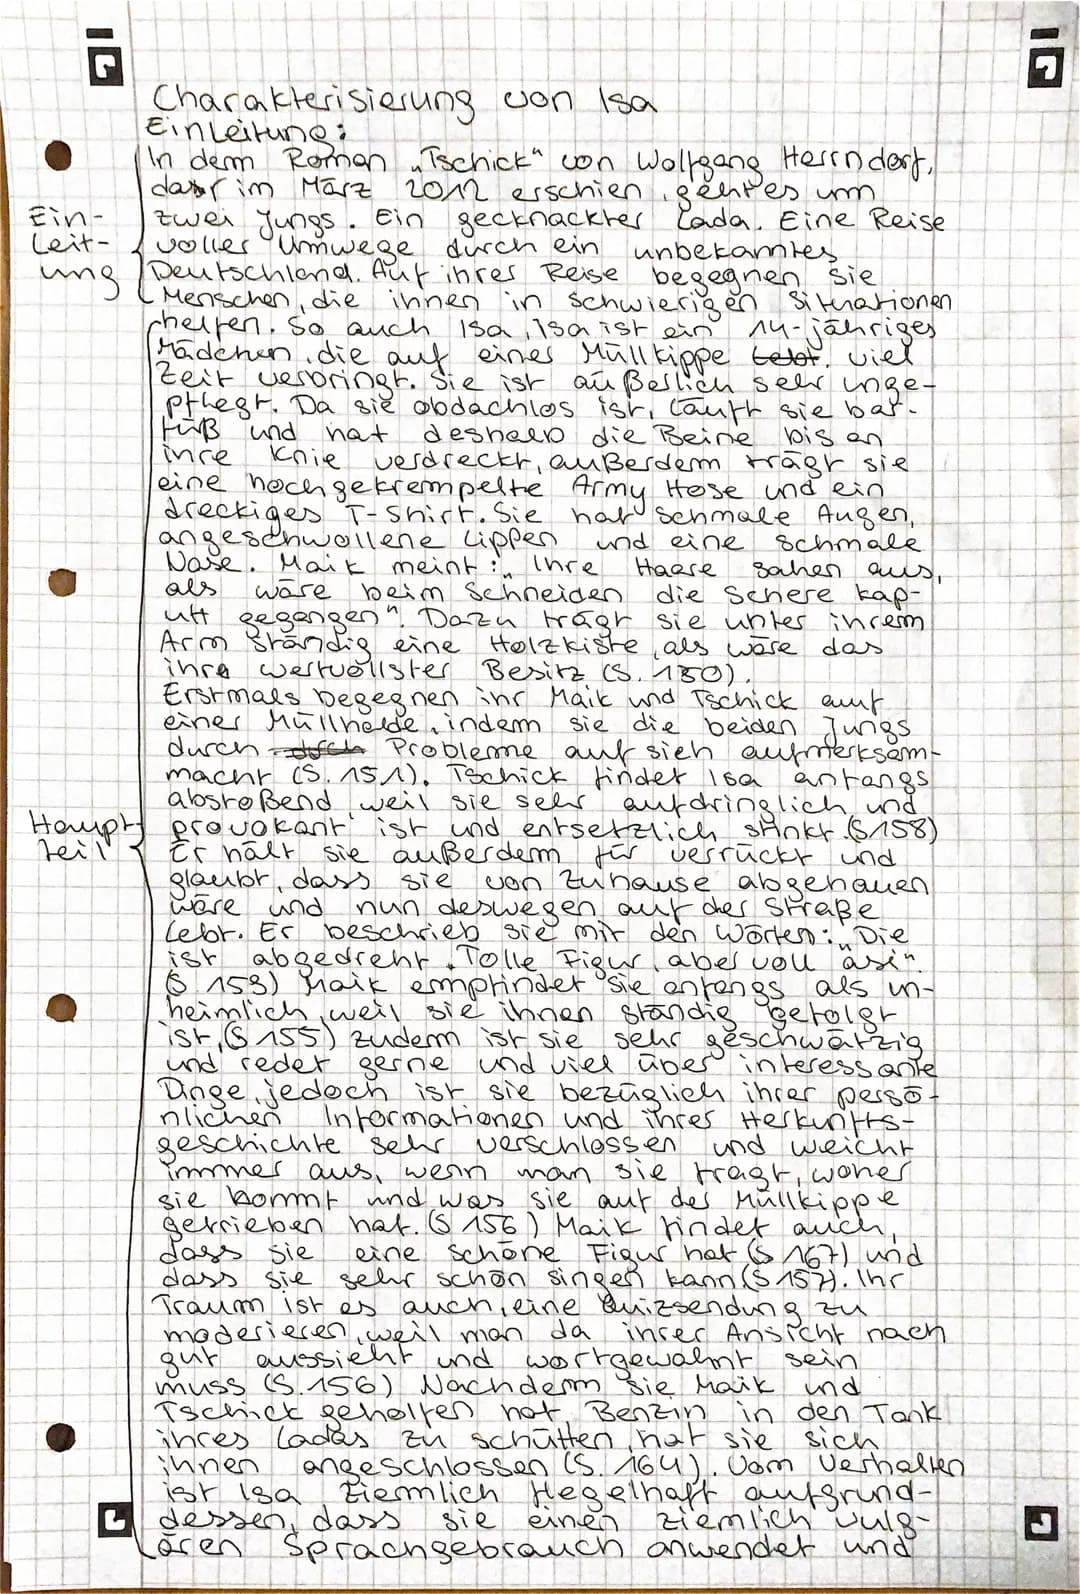 Charakterisierung von Isa
Einleitung:
In dem Roman „Tschick" von Wolfgang Herrndorf,
das im März 2012 erschien, geht es um
Ein-
zwei Jungs. Ein gecknackter Lada. Eine Reise
Leit-
voller Umwege durch ein unbekanntes
ung
Deutschland. Auf ihrer Reise begegnen sie
Menschen, die ihnen in schwierigen Situationen
helfen. So auch Isa, Isa ist ein 14-jähriges
Mädchen, die auf einer Müllkippe lebt. viel
Zeit verbringt. Sie ist äußerlich sehr unge-
pflegt. Da sie obdachlos ist, läuft sie bar-
fuß und hat deshalb die Beine bis an
ihre Knie verdreckt, außerdem trägt sie
eine hochgekrempelte Army Hose und ein
dreckiges T-Shirt. Sie hat schmale Augen,
angeschwollene Lippen und eine schmale
Nase. Maik meint: „Ihre Haare sahen aus,
als wäre beim Schneiden die Schere kap-
utt gegangen". Dazu trägt sie unter ihrem
Arm ständig eine Holzkiste, als wäre das
ihre wertvollster Besitz (S. 150).
Erstmals begegnen ihr Maik und Tschick auf
einer Müllhalde, indem sie die beiden Jungs
durch durch Probleme auf sich aufmerksam-
macht (S. 151). Tschick findet Isa anfangs
abstoßend, weil sie sehr aufdringlich und
Haupt-
provokant ist und entsetzlich stinkt. (S158)
teil
Er hält sie außerdem für verrückt und
glaubt, dass sie von Zuhause abgehauen
wäre und nun deswegen auf der Straße
lebt. Er beschrieb sie mit den Worten: „Die
ist abgedreht. Tolle Figur, aber voll asi".
(S. 153) Maik empfindet sie anfangs als un-
heimlich, weil sie ihnen ständig gefolgt
ist, (S 155) zudem ist sie sehr geschwätzig
und redet gerne und viel über interessante
Dinge, jedoch ist sie bezüglich ihrer persö-
nlichen Informationen und ihrer Herkunfts-
geschichte sehr verschlossen und weicht
immer aus, wenn man sie fragt, woher
sie kommt und was sie auf der Müllkippe
getrieben hat. (S 156) Maik findet auch,
dass sie eine schöne Figur hat (S 167) und
dass sie sehr schön singen kann (S 157). Ihr
Traum ist es auch, eine Quizsendung zu
moderieren, weil man da ihrer Ansicht nach
gut aussieht und wortgewahnt sein
muss (S. 156) Nachdem sie Maik und
Tschick geholfen hat, Benzin in den Tank
ihres Ladas zu schütten, hat sie sich
ihnen angeschlossen (S. 164). Vom Verhalten
ist Isa ziemlich flegelhaft aufgrund-
dessen, dass sie einen ziemlich vulg-
ären Sprachgebrauch anwendet und